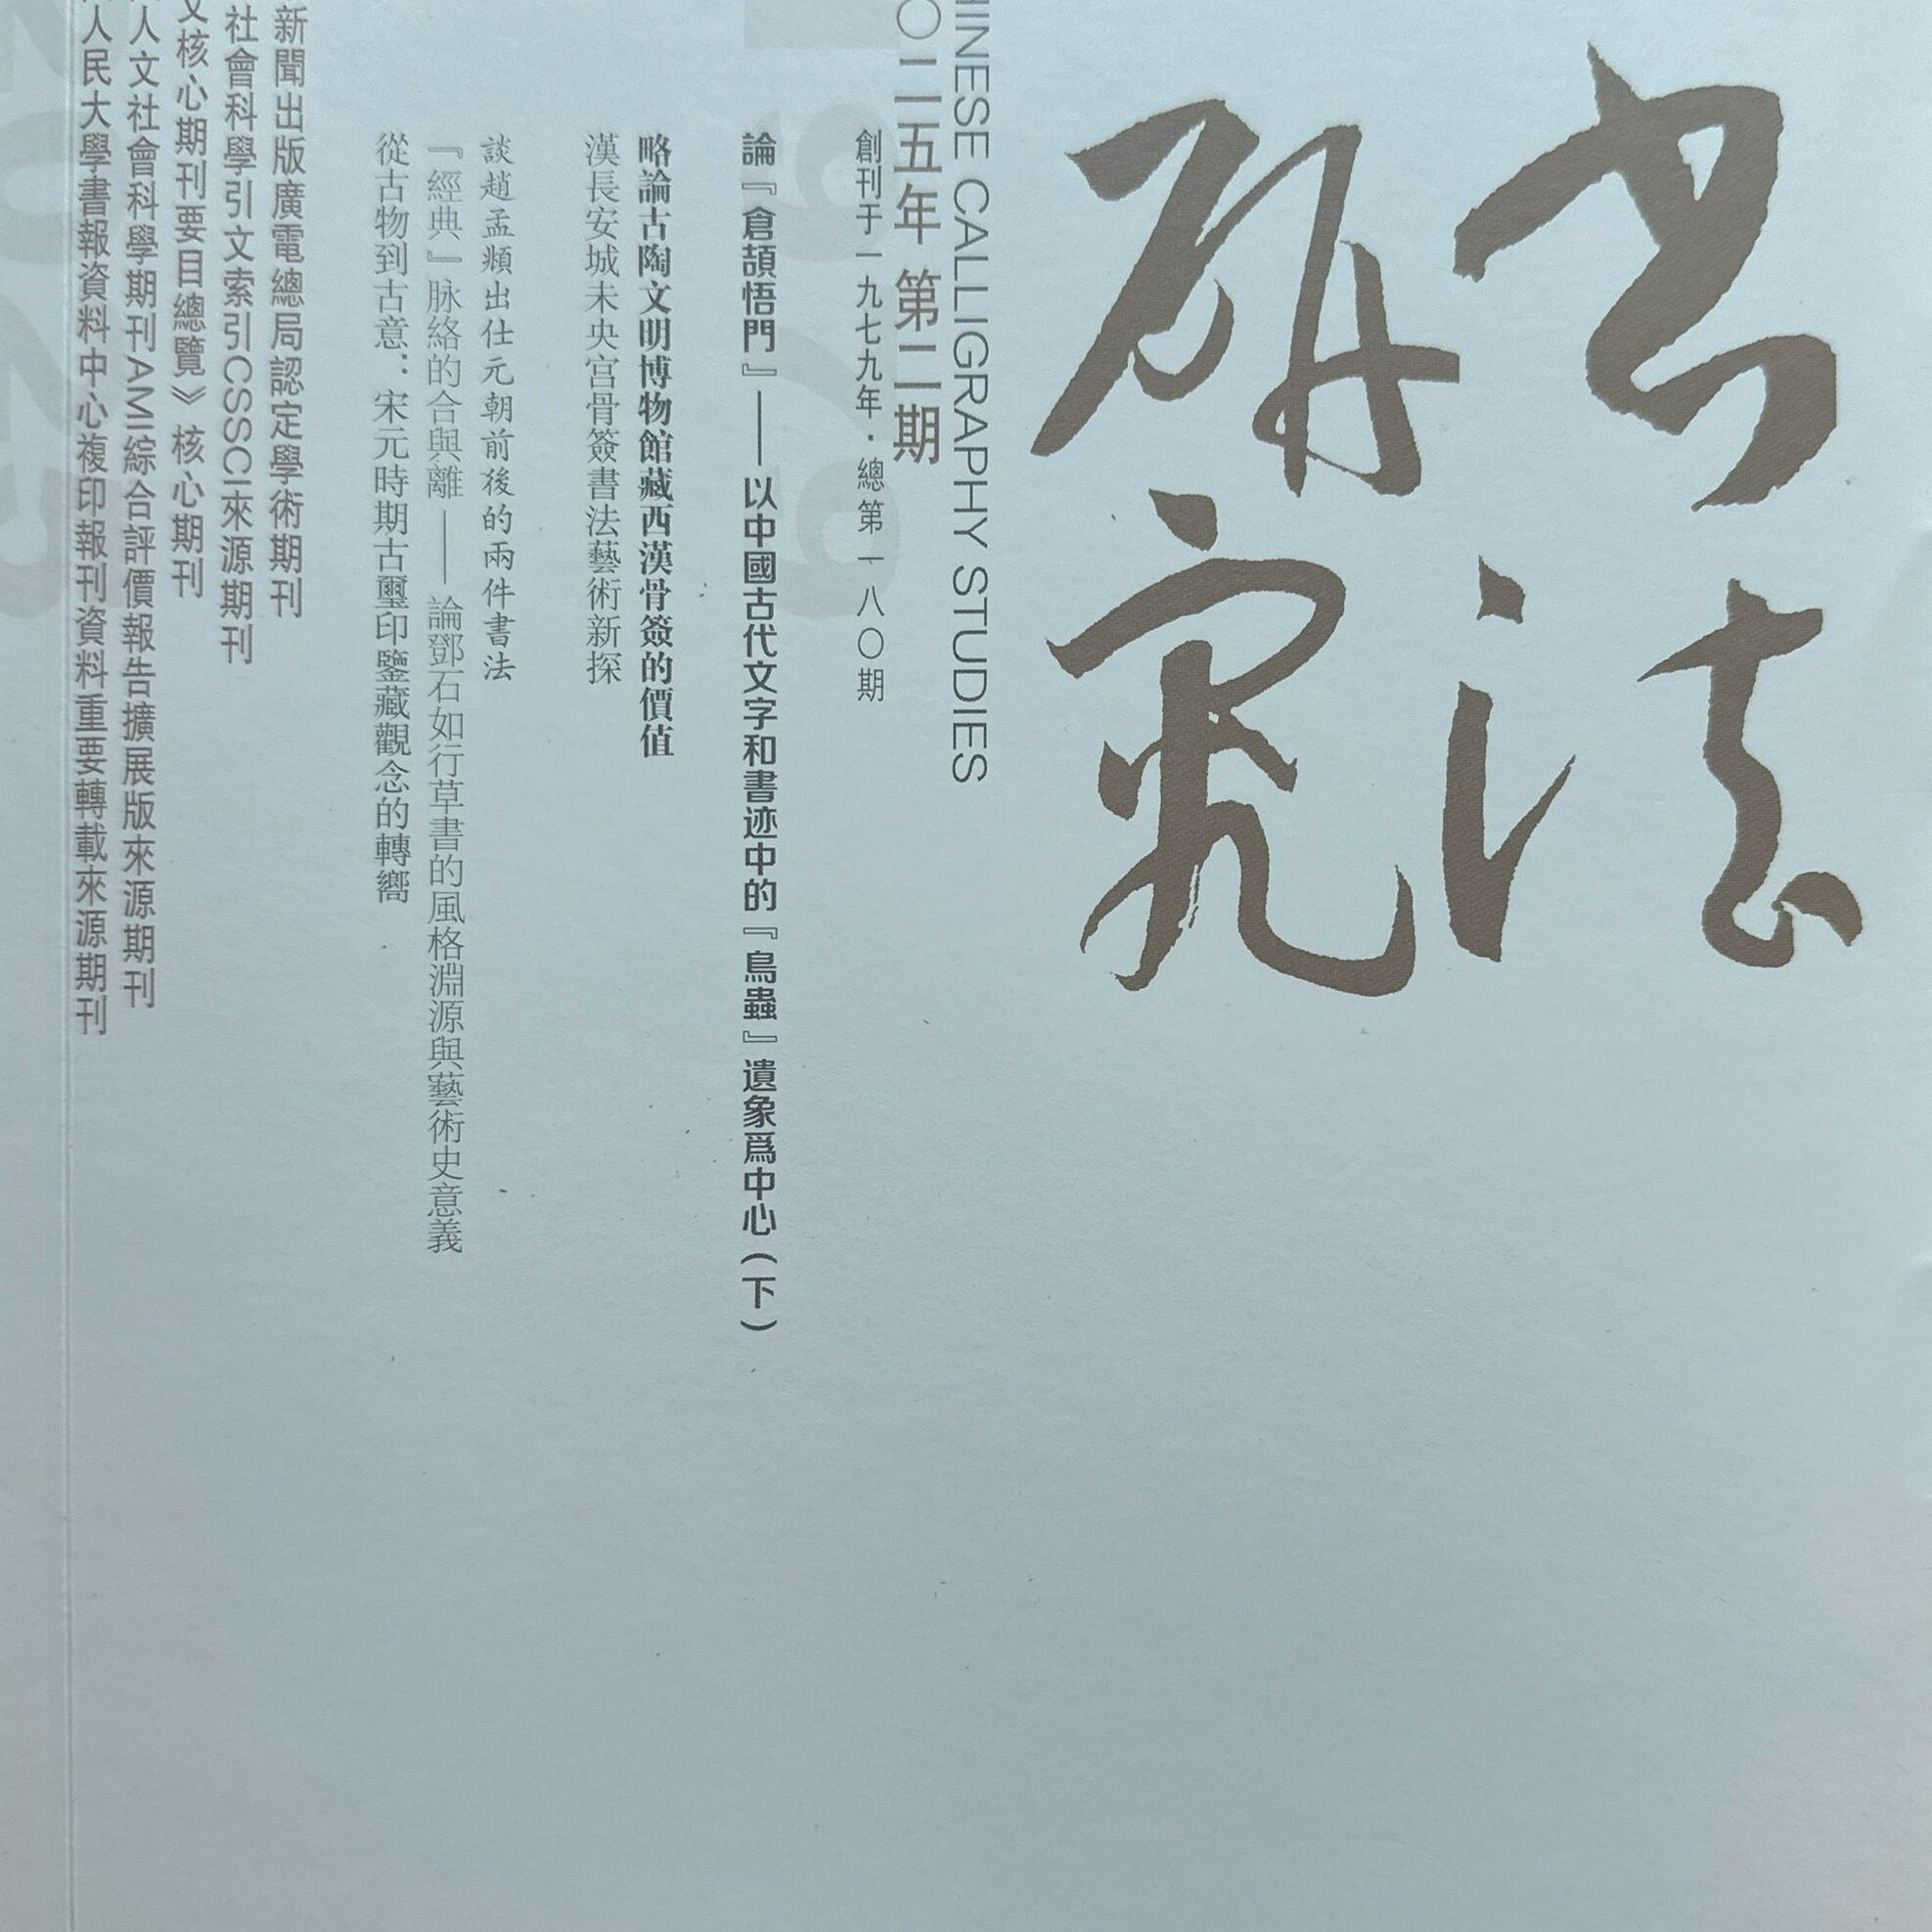 书法
研究
HINESE CALLIGRAPHY STUDIES
〇二五年 第二期
創刊于一九七九年·總第一八〇期
論『倉頡悟門』——以中國古代文字和書迹中的『鳥蟲』遺象爲中心(下)
略論古陶文明博物館藏西漢骨簽的價值
漢長安城未央宫骨簽書法藝術新探
談趙孟頫出仕元朝前後的兩件書法
『經典』脉絡的合與離——論鄧石如行草書的風格淵源與藝術史意義
從古物到古意：宋元時期古璽印鑒藏觀念的轉嚮
新聞出版廣電總局認定學術期刊
社會科學引文索引CSSCI來源期刊
文核心期刊要目總覽》核心期刊
人文社會科學期刊AMI綜合評價報告擴展版來源期刊
人民大學書報資料中心複印報刊資料重要轉載來源期刊